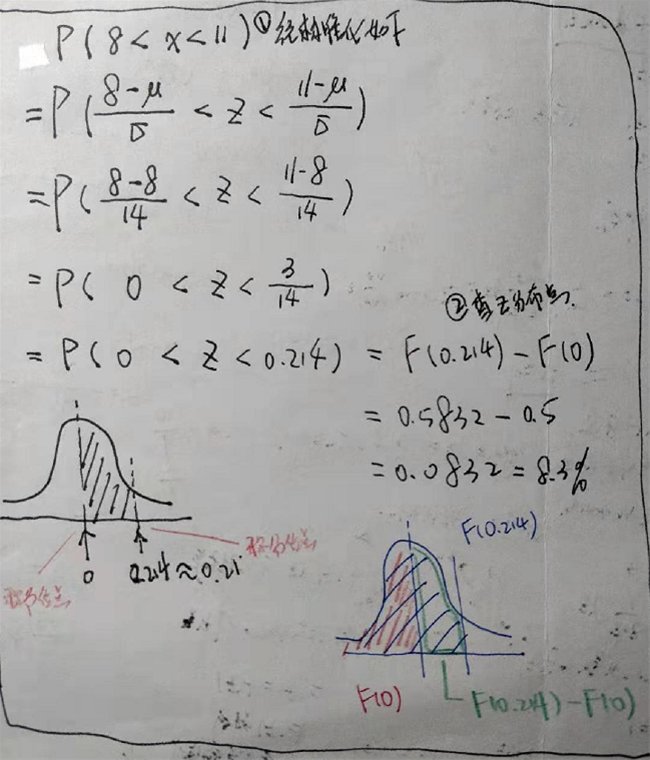 P(8<x<11) ①经标准化如下
=P(8-μ/σ < z < 11-μ/σ)
=P(8-8/14 < z < 11-8/14)
=P( 0 < z < 3/14)
②查z分布
=P(0 < z < 0.214) = F(0.214)-F(0)
= 0.5832-0.5
=0.0832=8.3%
F(0.214)
0 0.214≈0.21
F(0) F(0.214)-F(0)